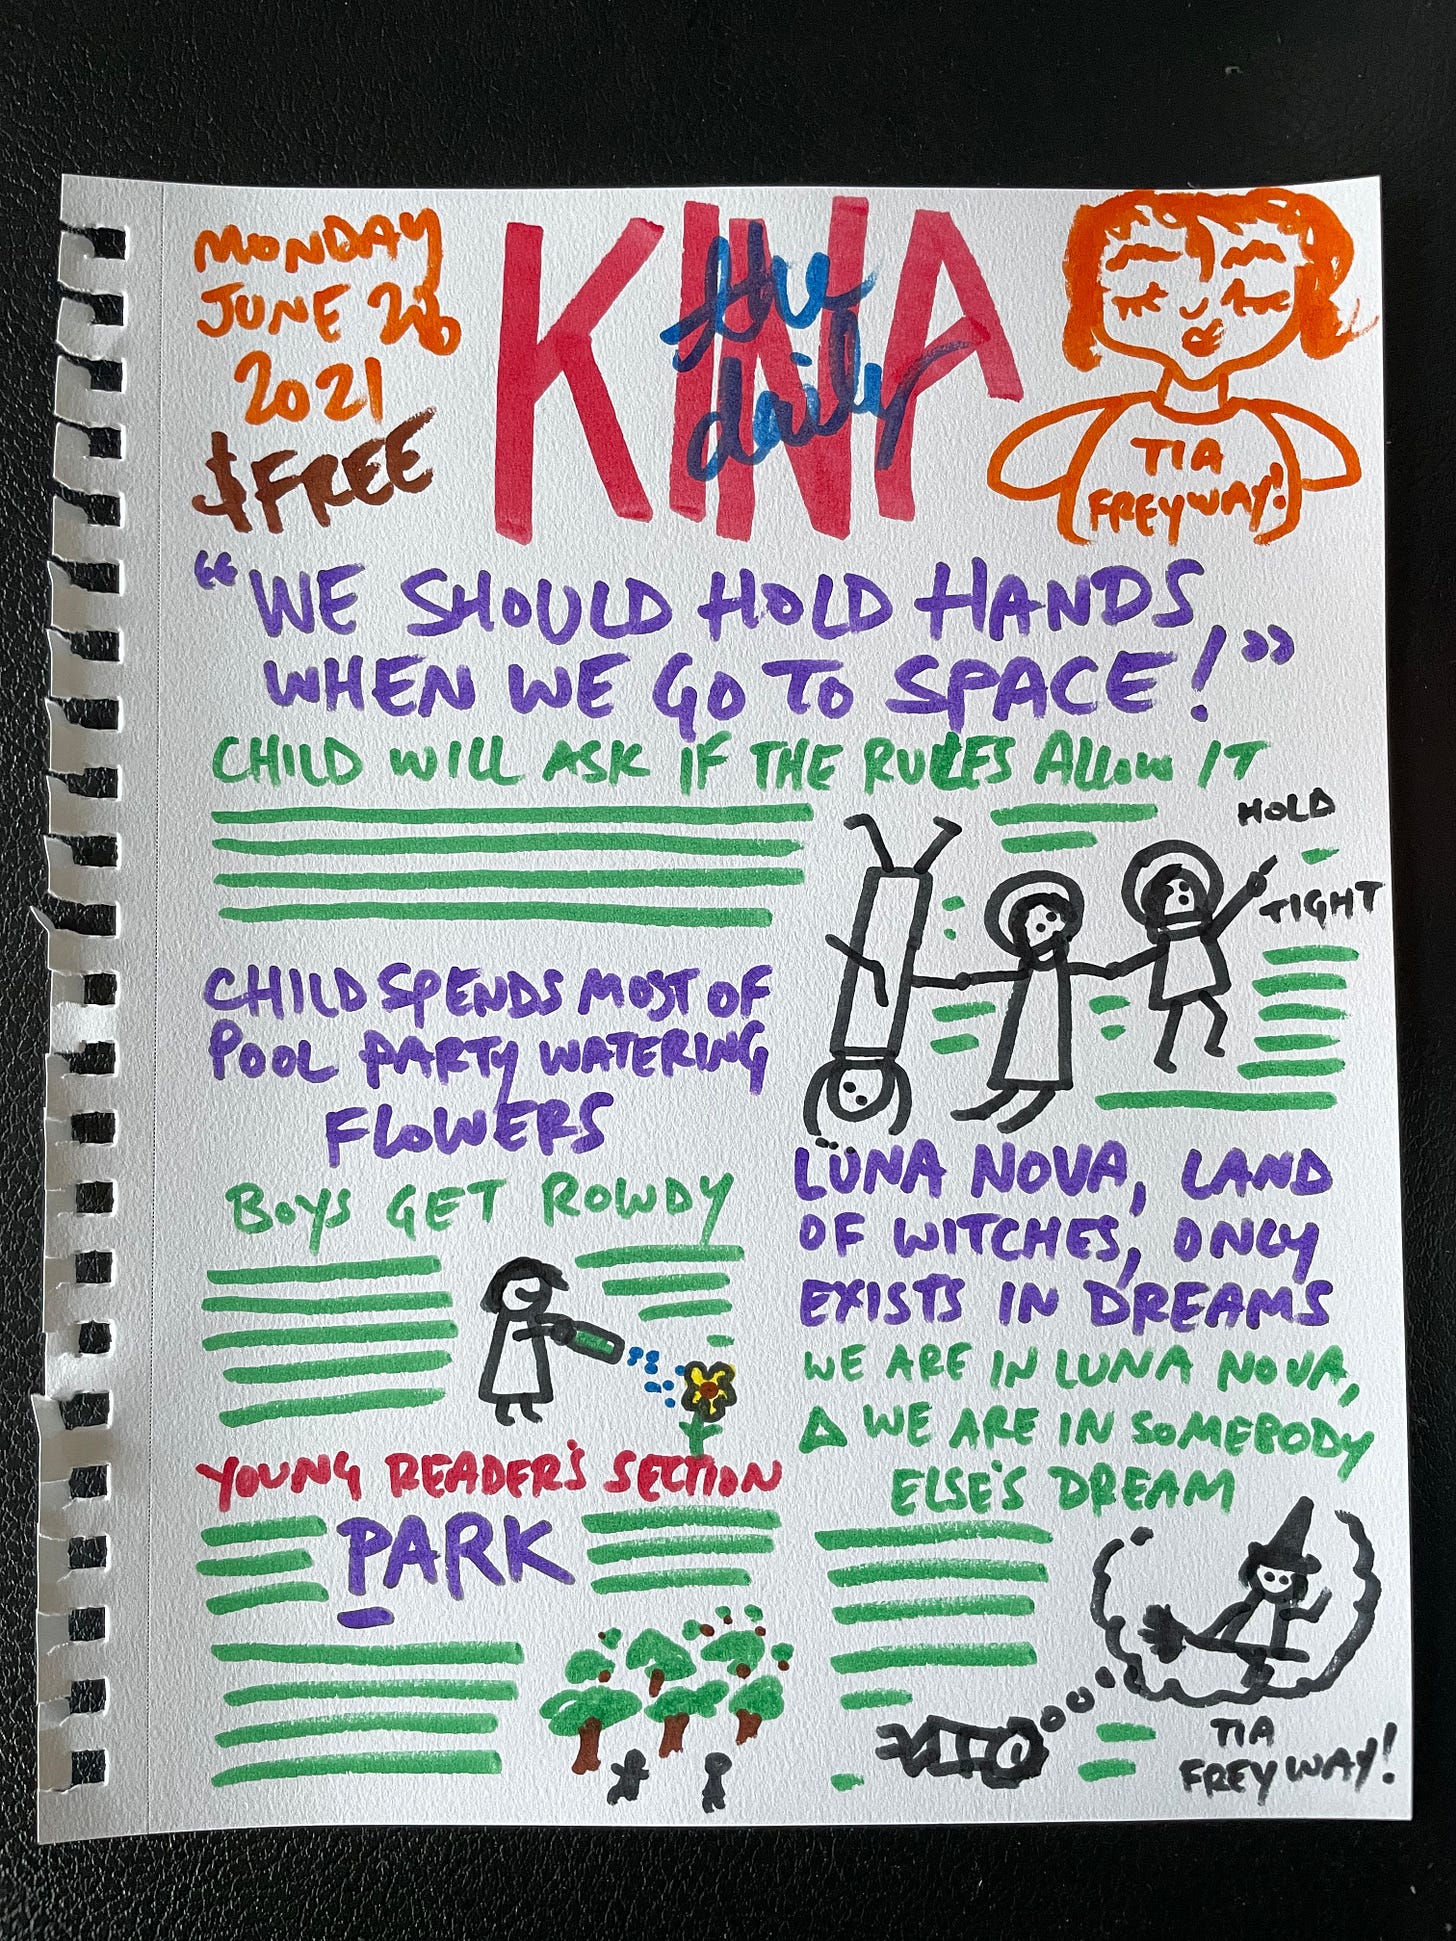 MONDAY
JUNE 28
2021
$FREE
the
daily
KINA
TIA
FREYWAY!
"WE SHOULD HOLD HANDS
WHEN WE GO TO SPACE!"
CHILD WILL ASK IF THE RULES ALLOW IT
HOLD
TIGHT
CHILD SPENDS MOST OF
POOL PARTY WATERING
FLOWERS
BOYS GET ROWDY
LUNA NOVA, LAND
OF WITCHES, ONLY
EXISTS IN DREAMS
WE ARE IN LUNA NOVA,
& WE ARE IN SOMEBODY
ELSE'S DREAM
YOUNG READER'S SECTION
PARK
TIA
FREYWAY!